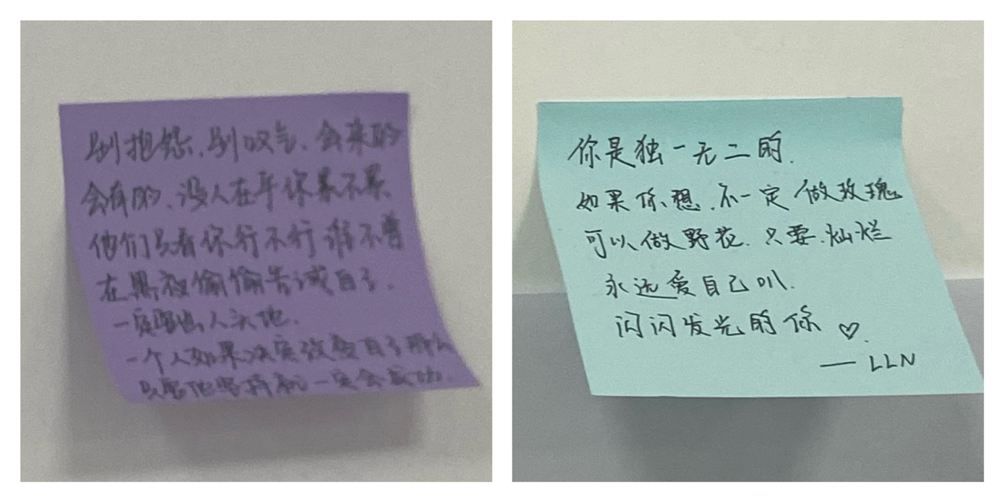 别抱怨、别叹气、会来的
会有的、没人在乎你累不累
他们只看你行不行谁不曾
在黑夜偷偷告诫自己、
一定要出人头地、
一个人如果决定改变自己那么
只要他坚持就一定会成功
你是独一无二的、
如果你想、不一定做玫瑰
可以做野花、只要、灿烂
永远爱自己叭、
闪闪发光的你♡、
—LLN